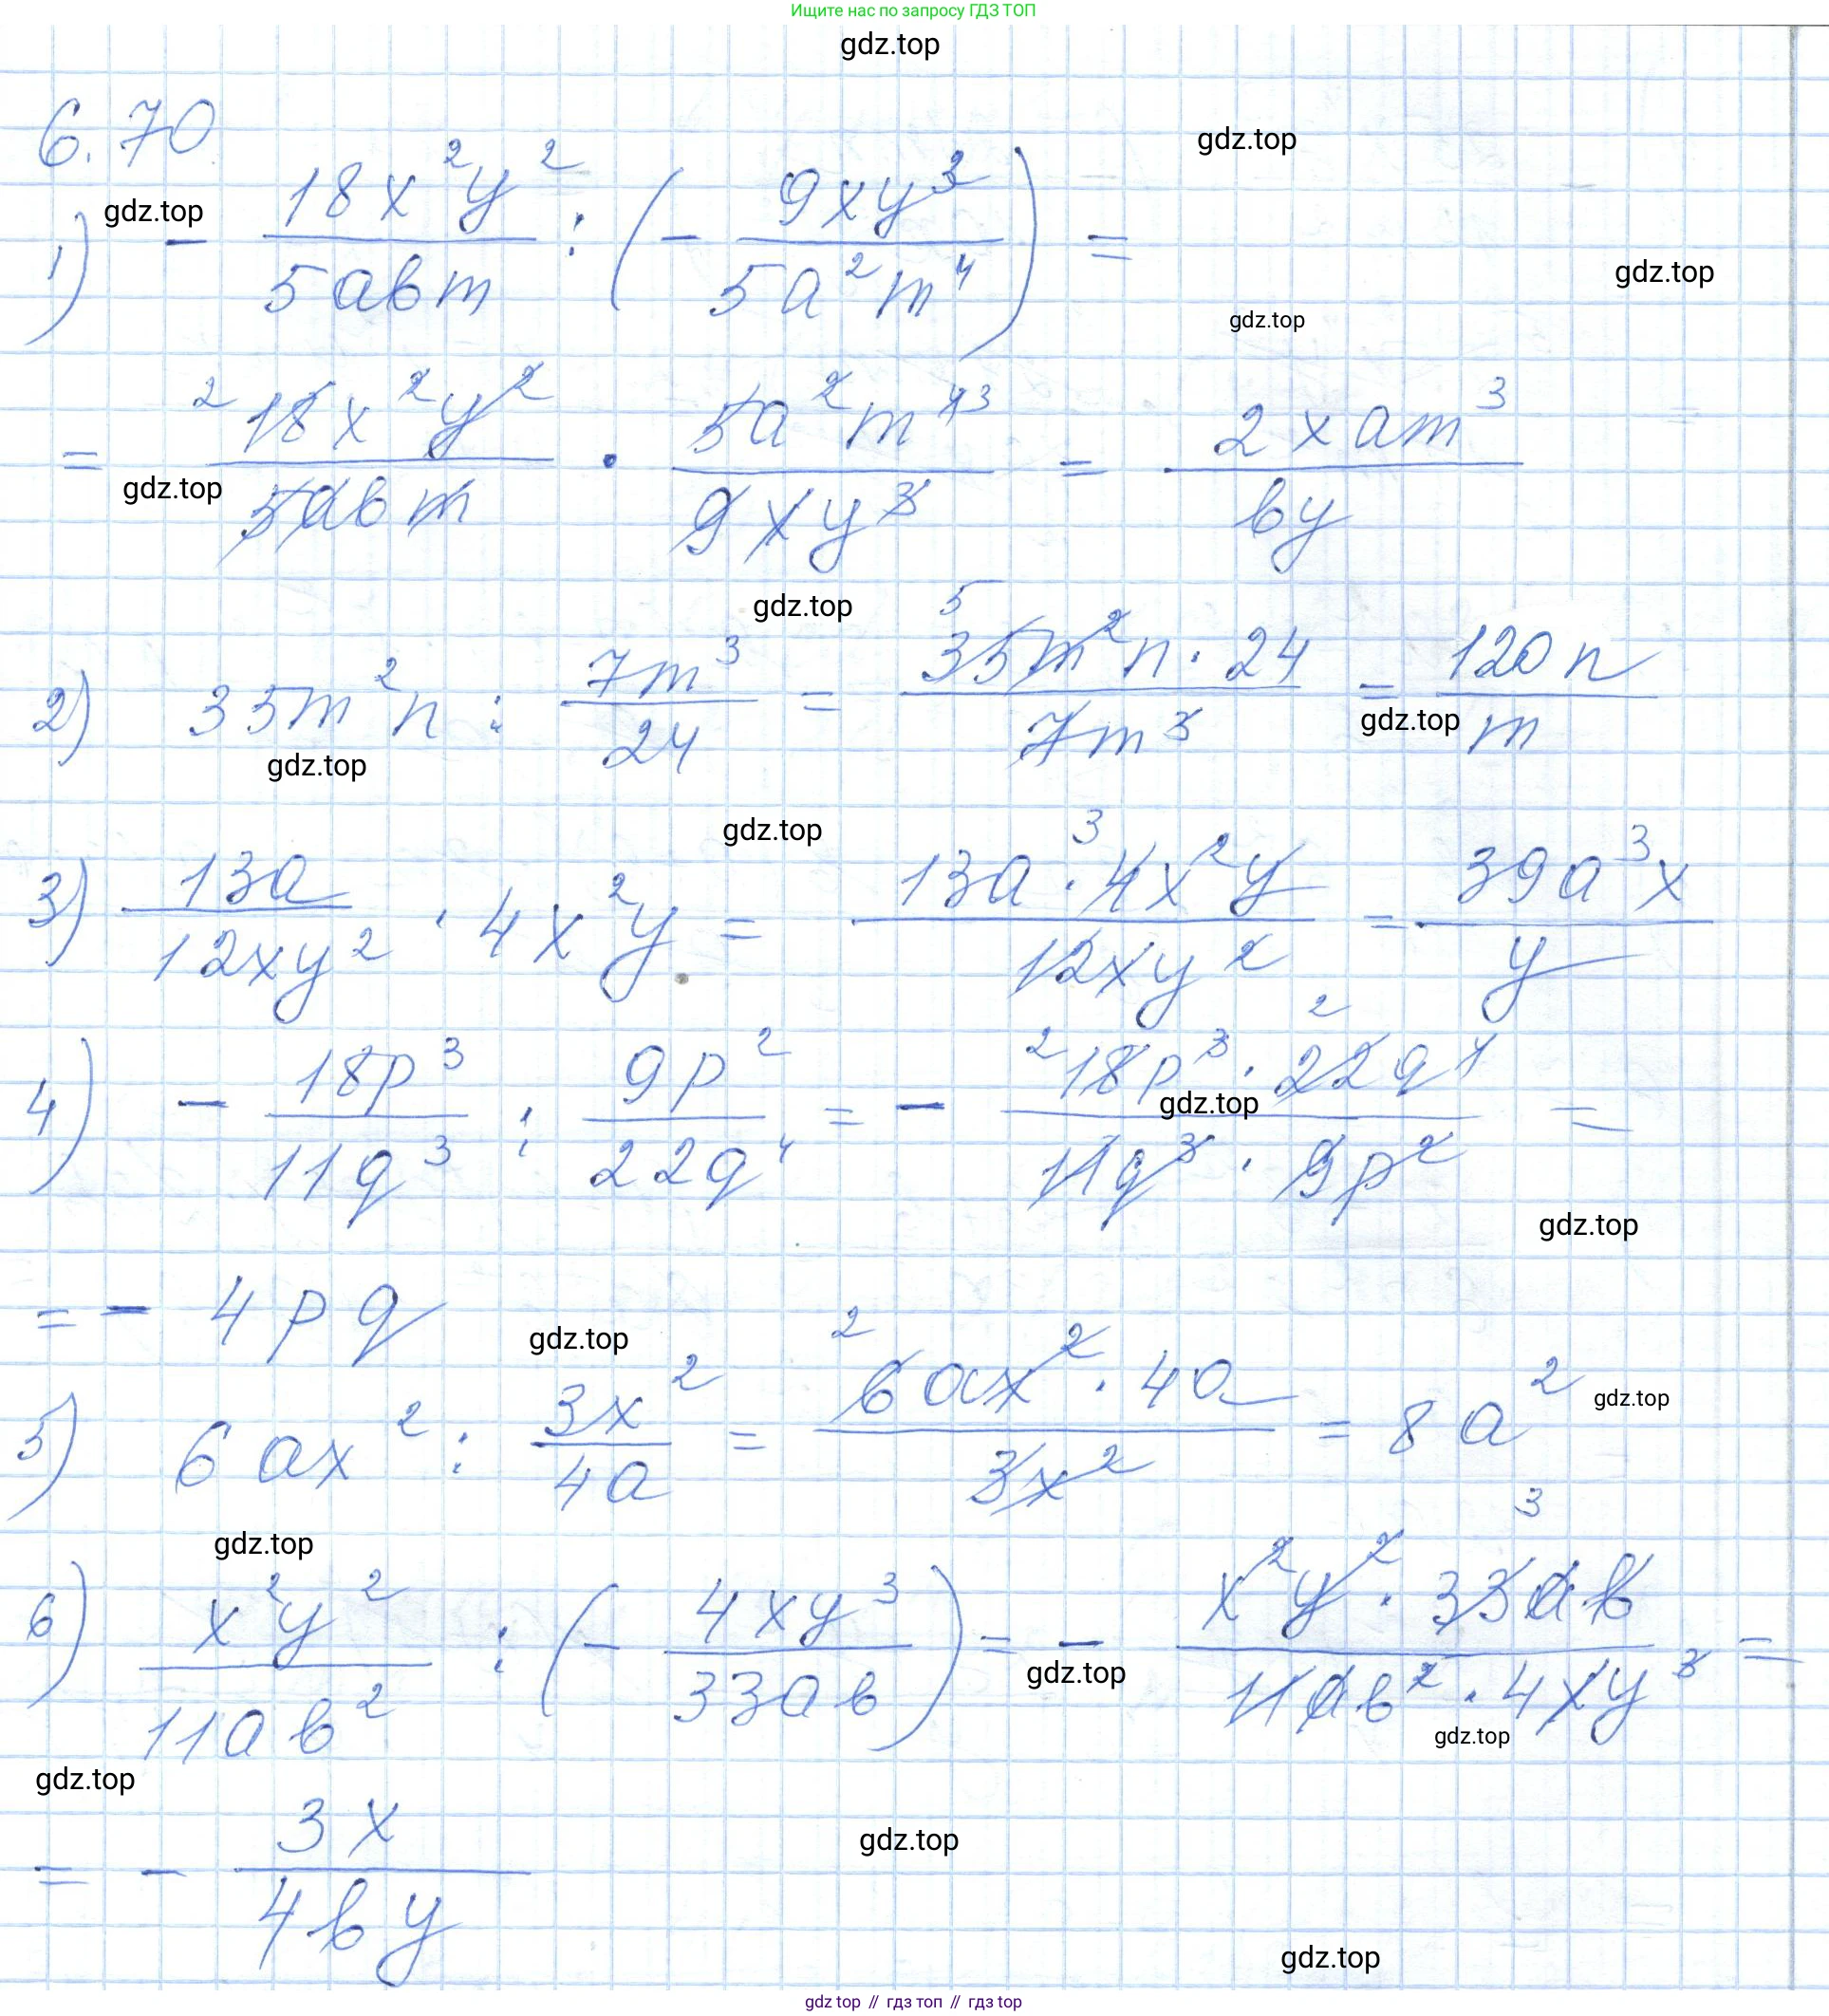 Ищите нас по запросу ГДЗ ТОП
gdz.top
6.70
gdz.top
gdz.top
1) - 18x²y²/5abm : (- 9xy³/5a²m⁴) =
gdz.top
gdz.top
= ² 18x²y²/5abm · 5a²m⁴ ³/9xy³ = 2xam³/by
gdz.top
gdz.top
2) 35m²n : 7m³/24 = ⁵ 35m²n · 24/7m³ = 120n/m
gdz.top
gdz.top
gdz.top
3) 13a/12xy² · 4x²y = 13a · ³ 4x²y/12xy² = 39a³x/y
4) - 18p³/11q³ : 9p²/22q⁴ = - ² 18p³ · ² 22q⁴/11q³ · 9p² =
gdz.top
gdz.top
= - 4pq
gdz.top
5) 6ax² : 3x²/4a = ² 6ax² · 4a/3x² = 8a²
gdz.top
gdz.top
6) x²y²/11ab² : (- 4xy³/33ab) = - x²y² · ³ 33ab/11ab² · 4xy³ =
gdz.top
gdz.top
gdz.top
= - 3x/4by
gdz.top
gdz.top
gdz top // гдз топ // гдз top